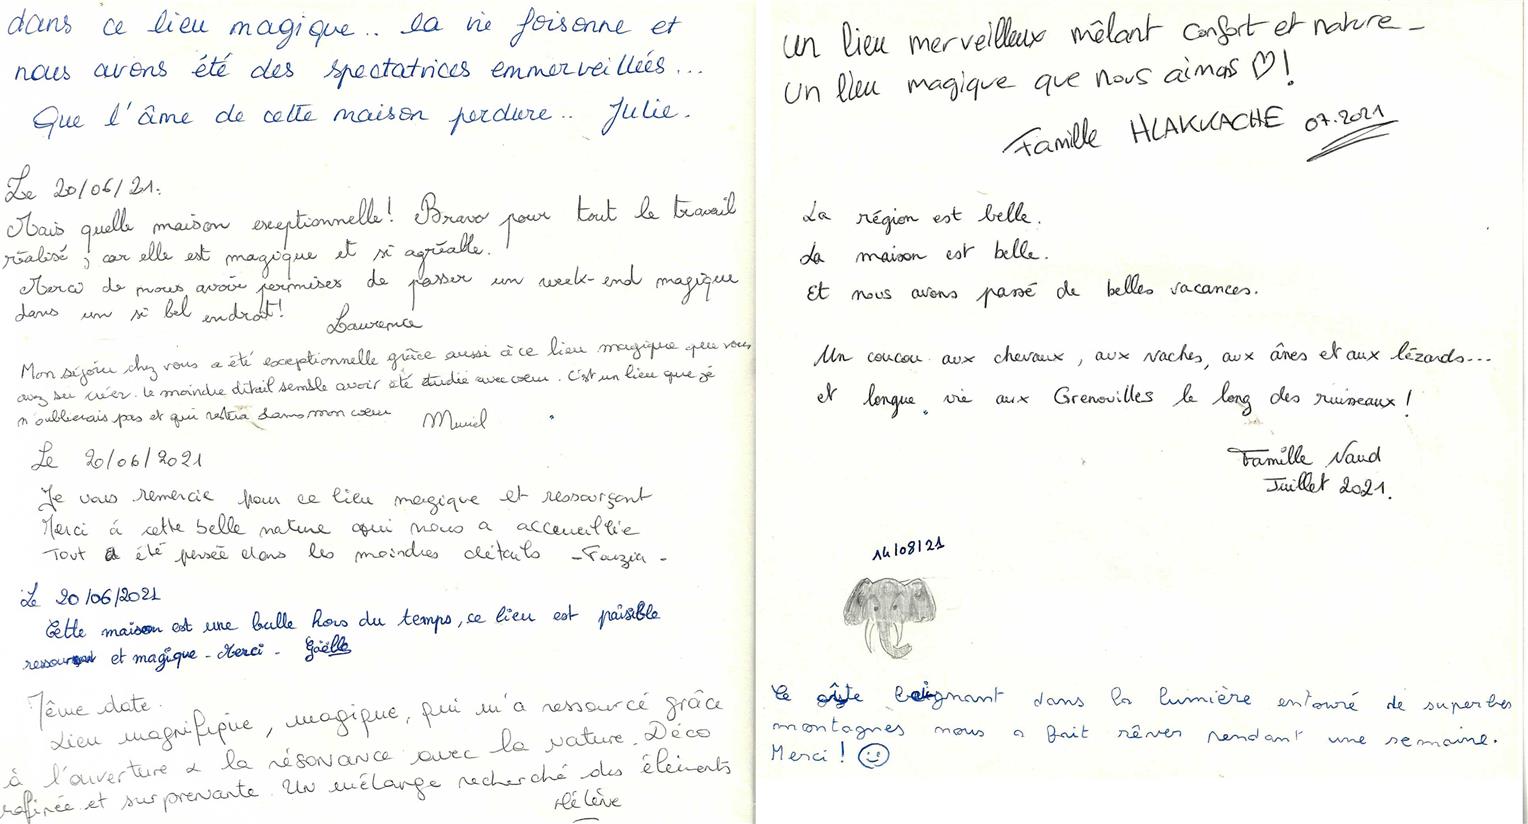 dans ce lieu magique.. la vie foisonne et
nous avons été des spectatrices emmerveillées...
Que l'âme de cette maison perdure.. Julie.
Le 20/06/21:
Mais quelle maison exeptionnelle! Bravo pour tout le travail
réalisé ; car elle est magique et si agréable.
Merci de nous avoir permises de passer un week-end magique
dans un si bel endroit!
Laurence
Mon séjour chez vous a été exceptionnelle grâce aussi à ce lieu magique que vous
avez su créer. le moindre détail semble avoir été étudié avec coeur. C'est un lieu que je
n'oublierais pas et qui restera dans mon coeur
Muriel
Le 20/06/2021
Je vous remercie pour ce lieu magique et ressourçant
Merci à cette belle nature qui nous a accueillie
Tout a été pensée dans les moindres détails - Fauzia -
Le 20/06/2021
Cette maison est une bulle hors du temps, ce lieu est paisible
et magique - Merci - Gaëlle
7ème date.
Lieu magnifique, magique, qui m'a ressourcé grâce
à l'ouverture & la résonance avec la nature. Déco
rafinée et surprenante. Un mélange recherché des éléments
Hélène
un lieu merveilleux mêlant confort et nature -
un lieu magique que nous aimons ♡!
Famille HLAKKACHE 07.2021
La région est belle.
La maison est belle.
Et nous avons passé de belles vacances.
Un coucou aux chevaux, aux vaches, aux ânes et aux lézards...
et longue vie aux Grenouilles le long des ruisseaux!
Famille Naud
Juillet 2021.
14/08/21
Ce gîte baignant dans la lumière entouré de superbes
montagnes nous a fait rêver pendant une semaine.
Merci! ☺